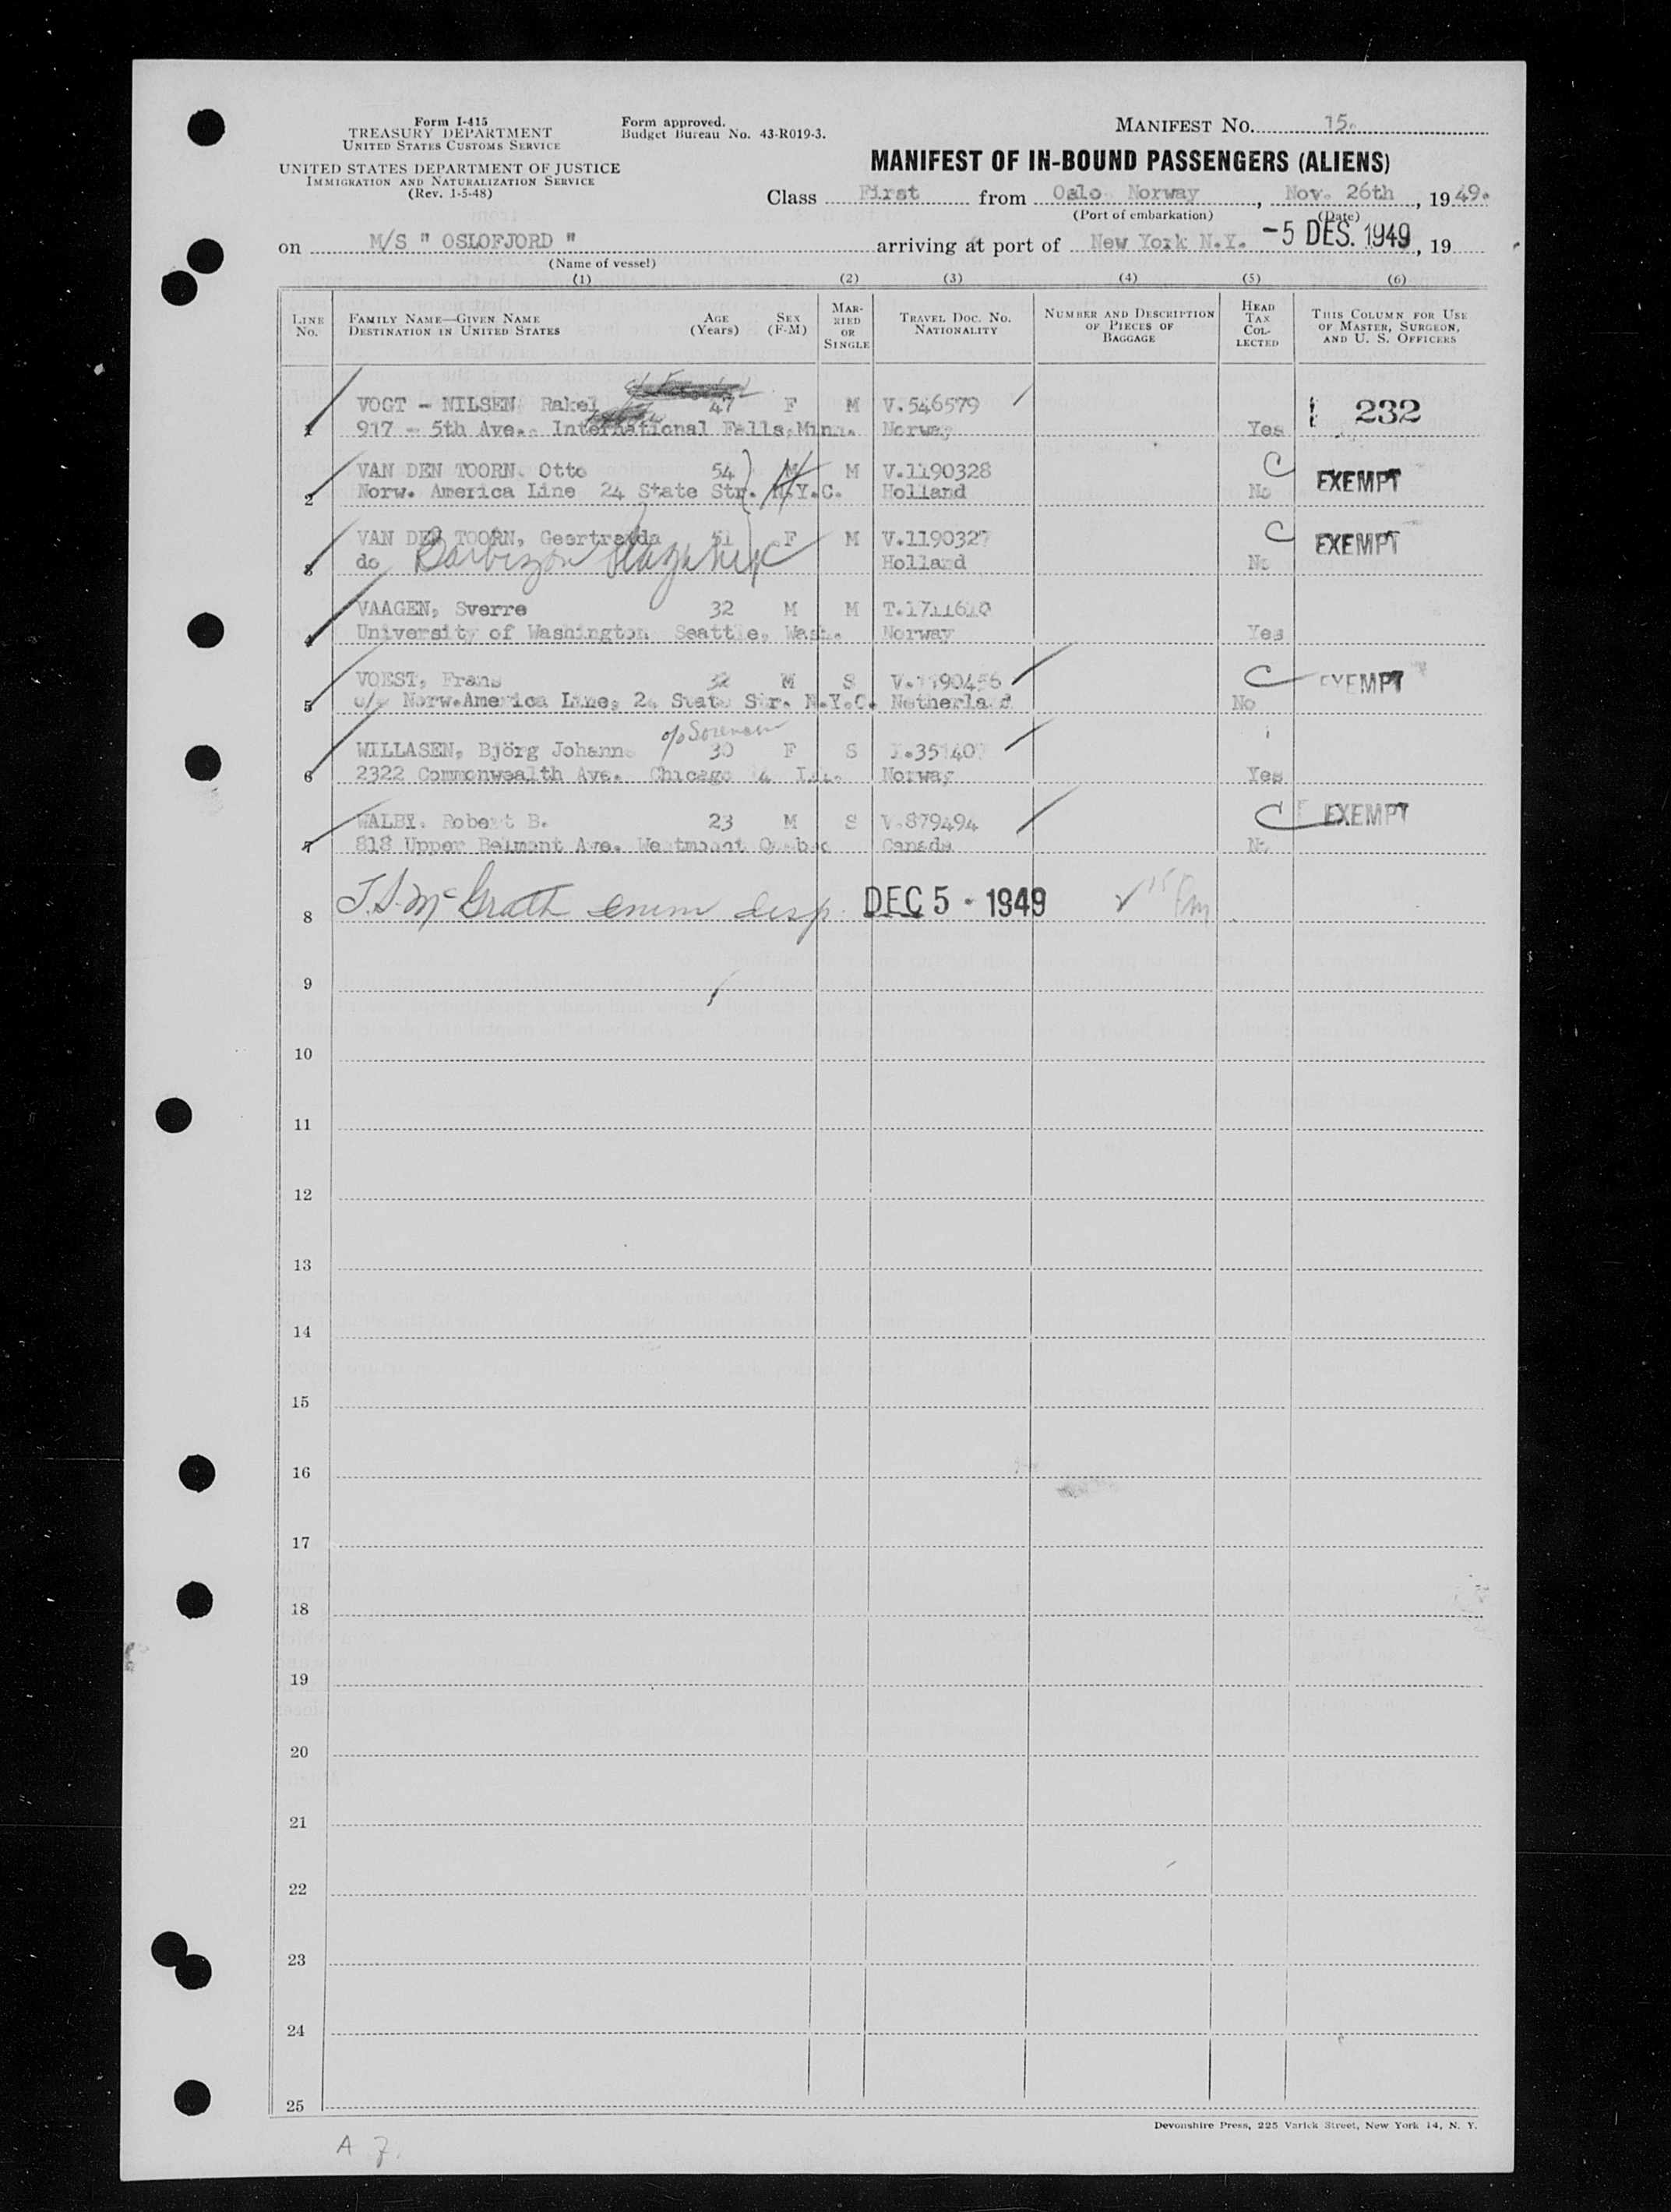 Form I-415
TREASURY DEPARTMENT
UNITED STATES CUSTOMS SERVICE
UNITED STATES DEPARTMENT OF JUSTICE
IMMIGRATION AND NATURALIZATION SERVICE
(Rev. 1-5-48)
Form approved.
Budget Bureau No. 43-R019-3.
MANIFEST NO. 15.
MANIFEST OF IN-BOUND PASSENGERS (ALIENS)
Class First from Oslo Norway, Nov. 26th, 1949.
(Port of embarkation) (Date)
on M/S " OSLOFJORD " arriving at port of New York N.Y. -5 DES. 1949, 19
(Name of vessel)
(1) (2) (3) (4) (5) (6)
LINE No. FAMILY NAME—GIVEN NAME DESTINATION IN UNITED STATES AGE (Years) SEX (F-M) MARRIED OR SINGLE TRAVEL DOC. NO. NATIONALITY NUMBER AND DESCRIPTION OF PIECES OF BAGGAGE HEAD TAX COLLECTED THIS COLUMN FOR USE OF MASTER, SURGEON, AND U. S. OFFICERS
VOGT - NILSEN Rakel 47 F M V.546579 232
1 917 - 5th Ave. International Falls, Minn. Norway Yes
VAN DEN TOORN. Otto 54 M M V.1190328 C EXEMPT
2 Norw. America Line 24 State Str. N.Y.C. Holland No
VAN DEN TOORN, Geertruida 51 F M V.1190327 C EXEMPT
3 do Barbizon Plaza NYC Holland No
VAAGEN, Sverre 32 M M T.1711610
4 University of Washington Seattle, Wash. Norway Yes
VOEST, Frans 32 M S V.1190456 C EXEMPT
5 c/o Norw.America Line, 24 State Str. N.Y.C. Netherland No
c/o Sorensen
WILLASEN, Björg Johanne 30 F S
6 2322 Commonwealth Ave. Chicago 14 Ill. Norway Yes
WALBY. Robert B. 23 M S V.879494 C EXEMPT
7 818 Upper Belmont Ave. Westmount Quebec Canada No
8 J.S. McGrath exam disp. DEC 5 - 1949
9
10
11
12
13
14
15
16
17
18
19
20
21
22
23
24
25
Devonshire Press, 225 Varick Street, New York 14, N. Y.
A 7.